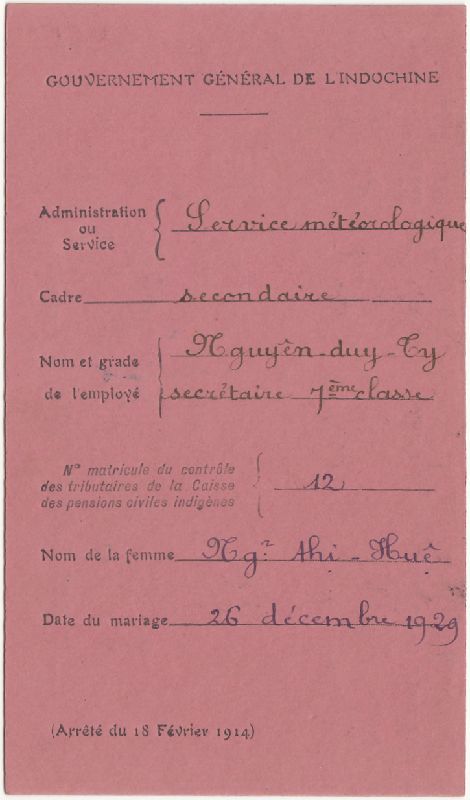 GOUVERNEMENT GÉNÉRAL DE L'INDOCHINE
Administration ou Service Service météorologique
Cadre secondaire
Nom et grade Nguyên-duy-Ty
de l'employé secrétaire 7ème classe
N° matricule du contrôle
des tributaires de la Caisse 12
des pensions civiles indigènes
Nom de la femme Ngn thi-Huê
Date du mariage 26 décembre 1929
(Arrêté du 18 Février 1914)